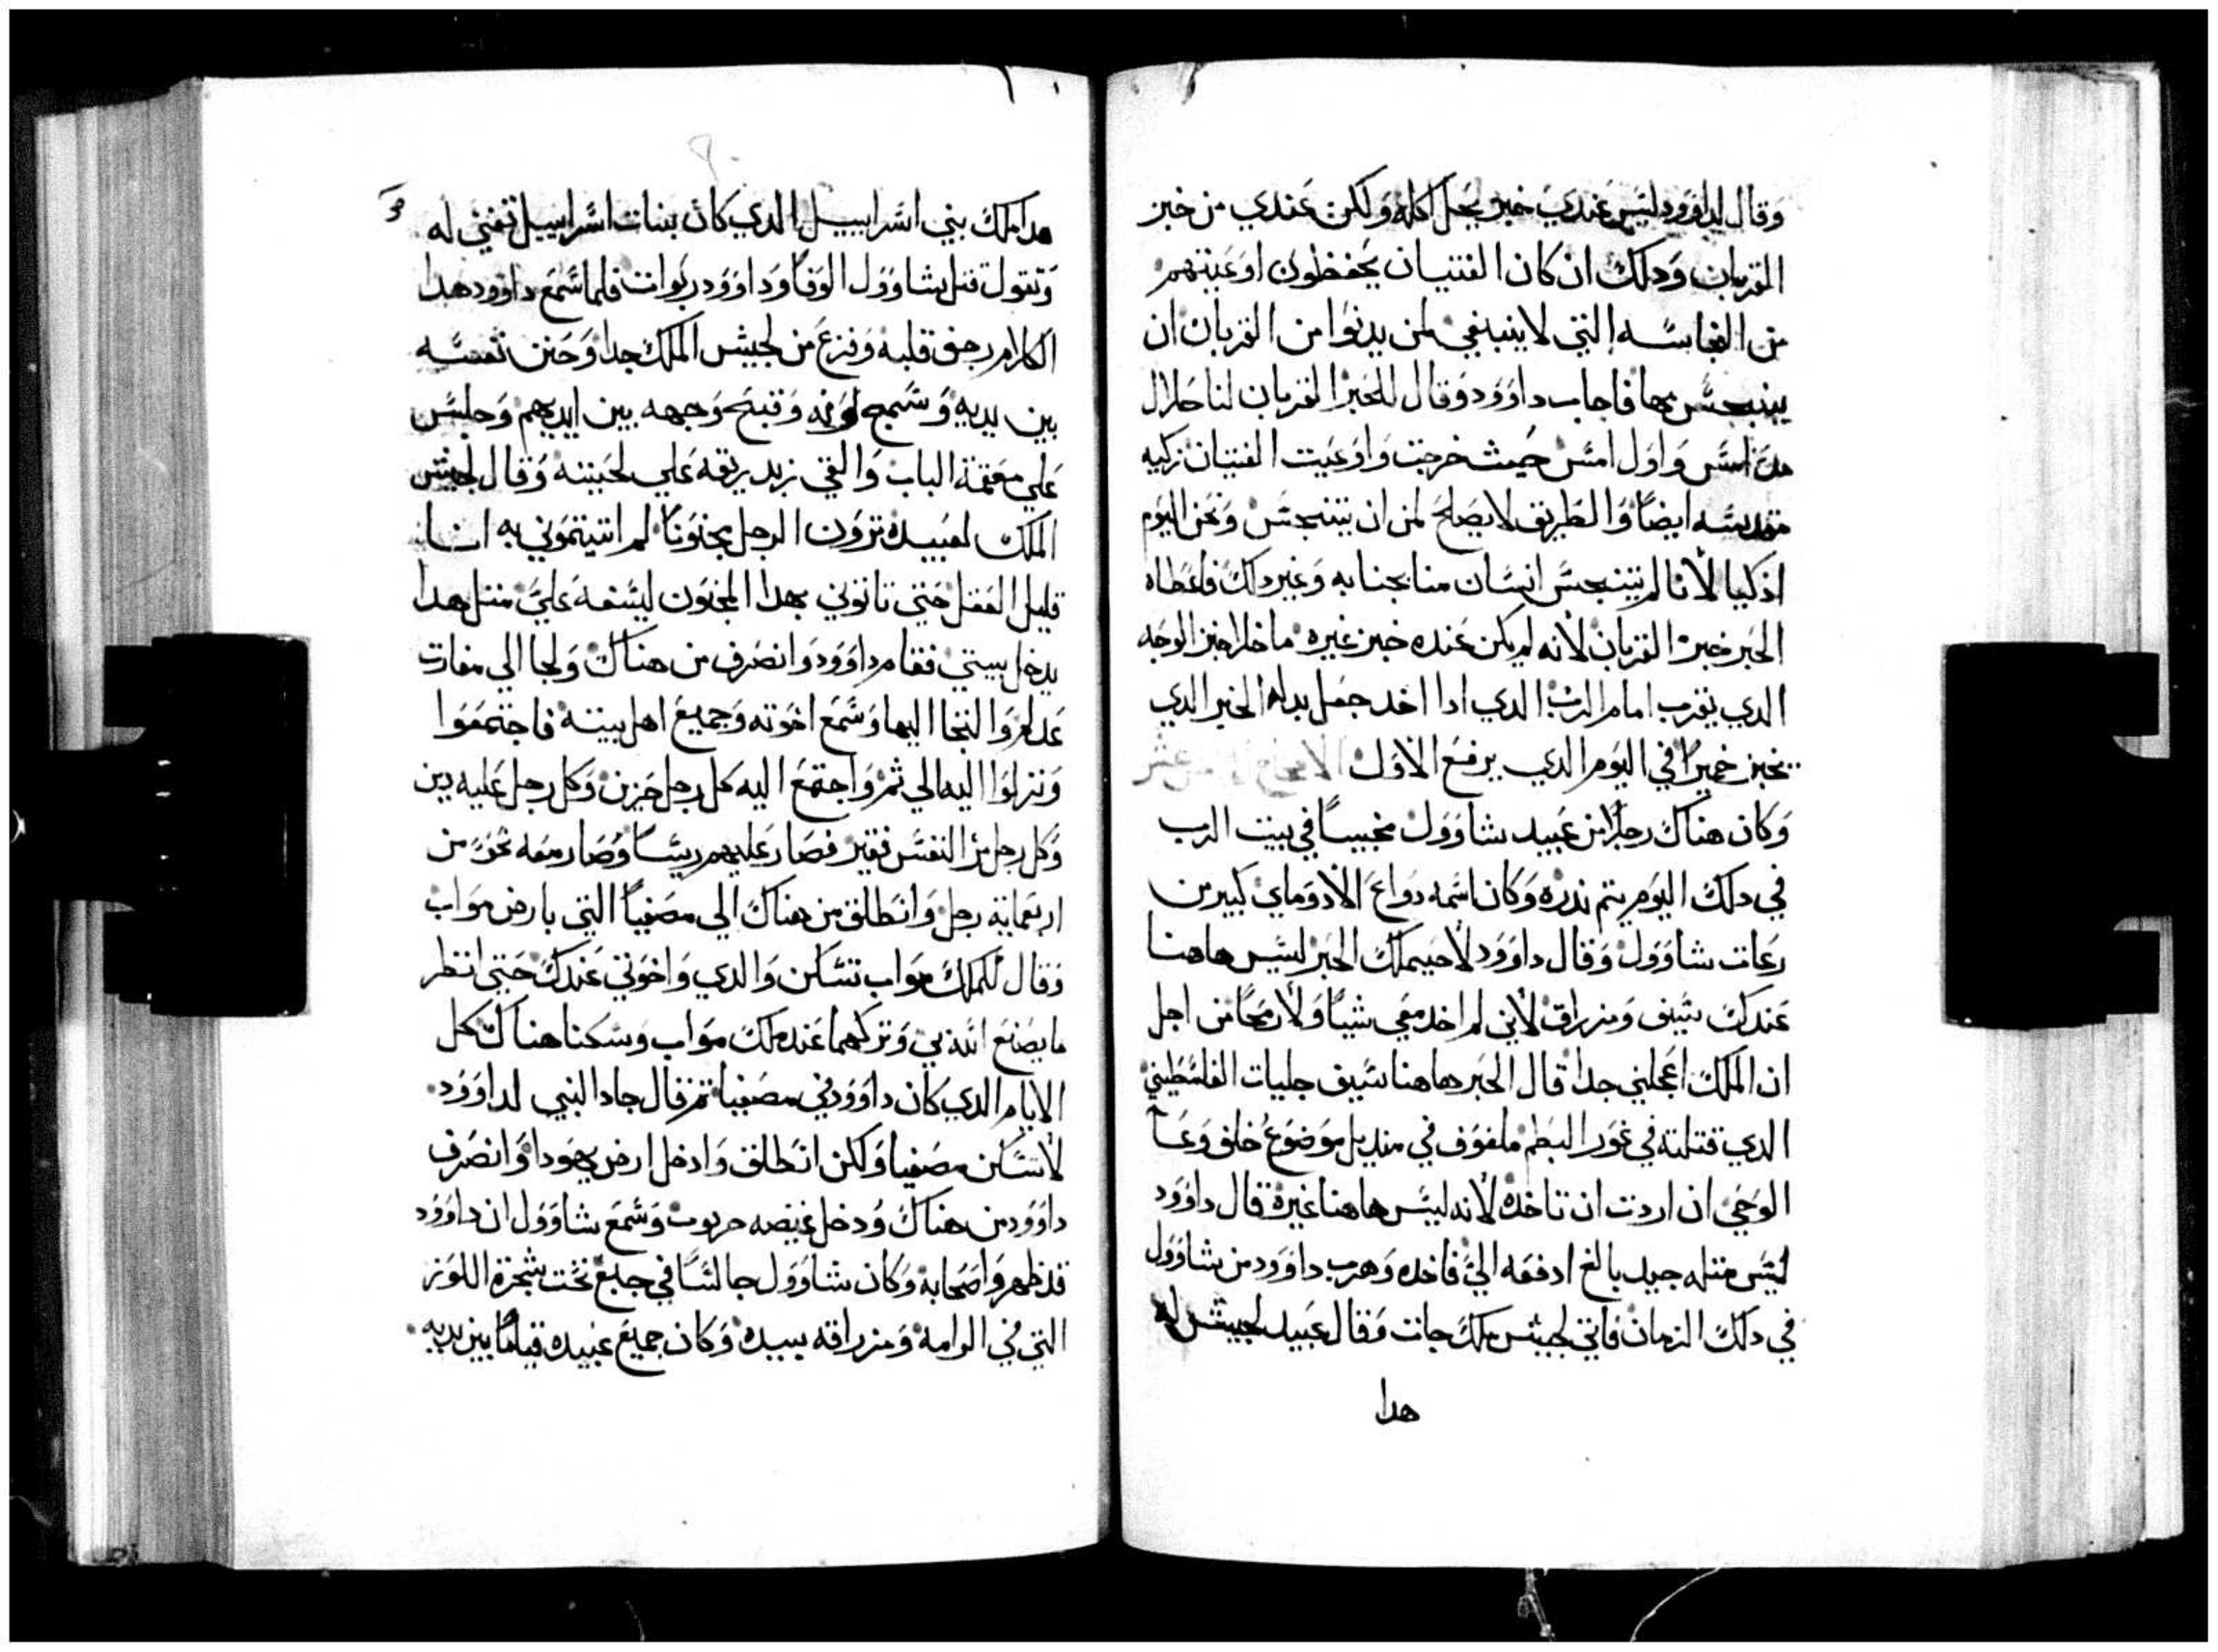 وقال لداوود ليس عندي خبز يحل اكله ولكن عندي من خبز
القربان ودلك ان كان الفتيان يحفظون اوعيتهم
من النجاسه التي لا ينبغي لمن يدنوا من القربان ان
يتنجس بها فاجاب داوود وقال للحبر القربان لنا حلال
امس واول امس حيث خرجت واوعيت الفتيان زكيه
مقدسه ايضاً والطريق لا يصلح لمن ان يتنجس ونحن اليوم
ازكيا لأنا لم يتنجس انسان منا بجنابه وغير دلك فاعطاه
الحبر خبز القربان لأنه لم يكن عنده خبز غيره ما خلا خبز الوجه
الدي يقرب امام الرب الدي ادا اخد جعل بدله الخبز الدي
يخبز خميراً في اليوم الدي يرفع الاول
وكان هناك رجلاً من عبيد شاوول مخبيساً في بيت الرب
في دلك اليوم يتم ندره وكان اسمه دواع الادوماي كبير من
رعات شاوول وقال داوود لاحيملك الحبر ليس هاهنا
عندك سيف ومزراق لأني لم اخد معي شياً ولا رمحاً من اجل
ان الملك اعجلني جدا قال الحبر هاهنا سيف جليات الفلسطيني
الدي قتلته في غور البطم ملفوف في منديل موضوع خلف وعآ
الوحي ان اردت ان تاخده لأنه ليس هاهنا غيره قال داوود
ليس مثله جيد بالغ ادفعه الي فاخده وهرب داوود من شاوول
في دلك الزمان فاتي لجيش ملك جات وقال عبيد لجيش له
هدا
هدا ملك بني اسراييل الدي كان بنات اسراييل تغني له
وتقول قتل شاوول الوفاً وداوود ربوات فلما سمع داوود هدا
الكلام رجف قلبه وفزع من لجيش الملك جدا وجنن نفسه
بين يديه وسمج لونه وقبح وجهه بين ايديهم وجلس
علي معقمة الباب والقي زبد ريقه علي لحيته وقال لجيش
الملك لعبيده ترون الرجل مجنوناً لم اتيتموني به انا
قليل العقل حتي تاتوني بهدا المجنون ليسفه علي مثل هدا
يدخل بيتي فقام داوود وانصرف من هناك ولجا الي مغارت
عدلم والتجا اليها وسمع اخوته وجميع اهل بيته فاجتمعوا
ونزلوا اليه الي ثم واجتمع اليه كل رجل حزين وكل رجل عليه دين
وكل رجل مر النفس فقير فصار عليهم ريساً وصار معه نحو من
اربعماية رجل وانطلق من هناك الي مصفيا التي بارض مواب
وقال لملك مواب تسكن والدي واخوتي عندك حتي انظر
ما يصنع الله بي وتركهما عند ملك مواب وسكنا هناك كل
الايام الدي كان داوود في مصفيا ثم قال جاد النبي لداوود
لا تسكن مصفيا ولكن انطلق وادخل ارض يهودا وانصرف
داوود من هناك ودخل غيضه حربوت وسمع شاوول ان داوود
قد ظهر واصحابه وكان شاوول جالساً في جبع تحت شجرة اللوز
التي في الرامة ومزراقه بيده وكان جميع عبيده قياماً بين يديه